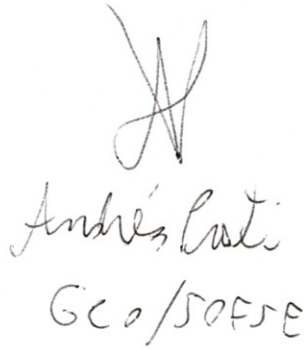 Andrés Crati
GCO/SOFSE